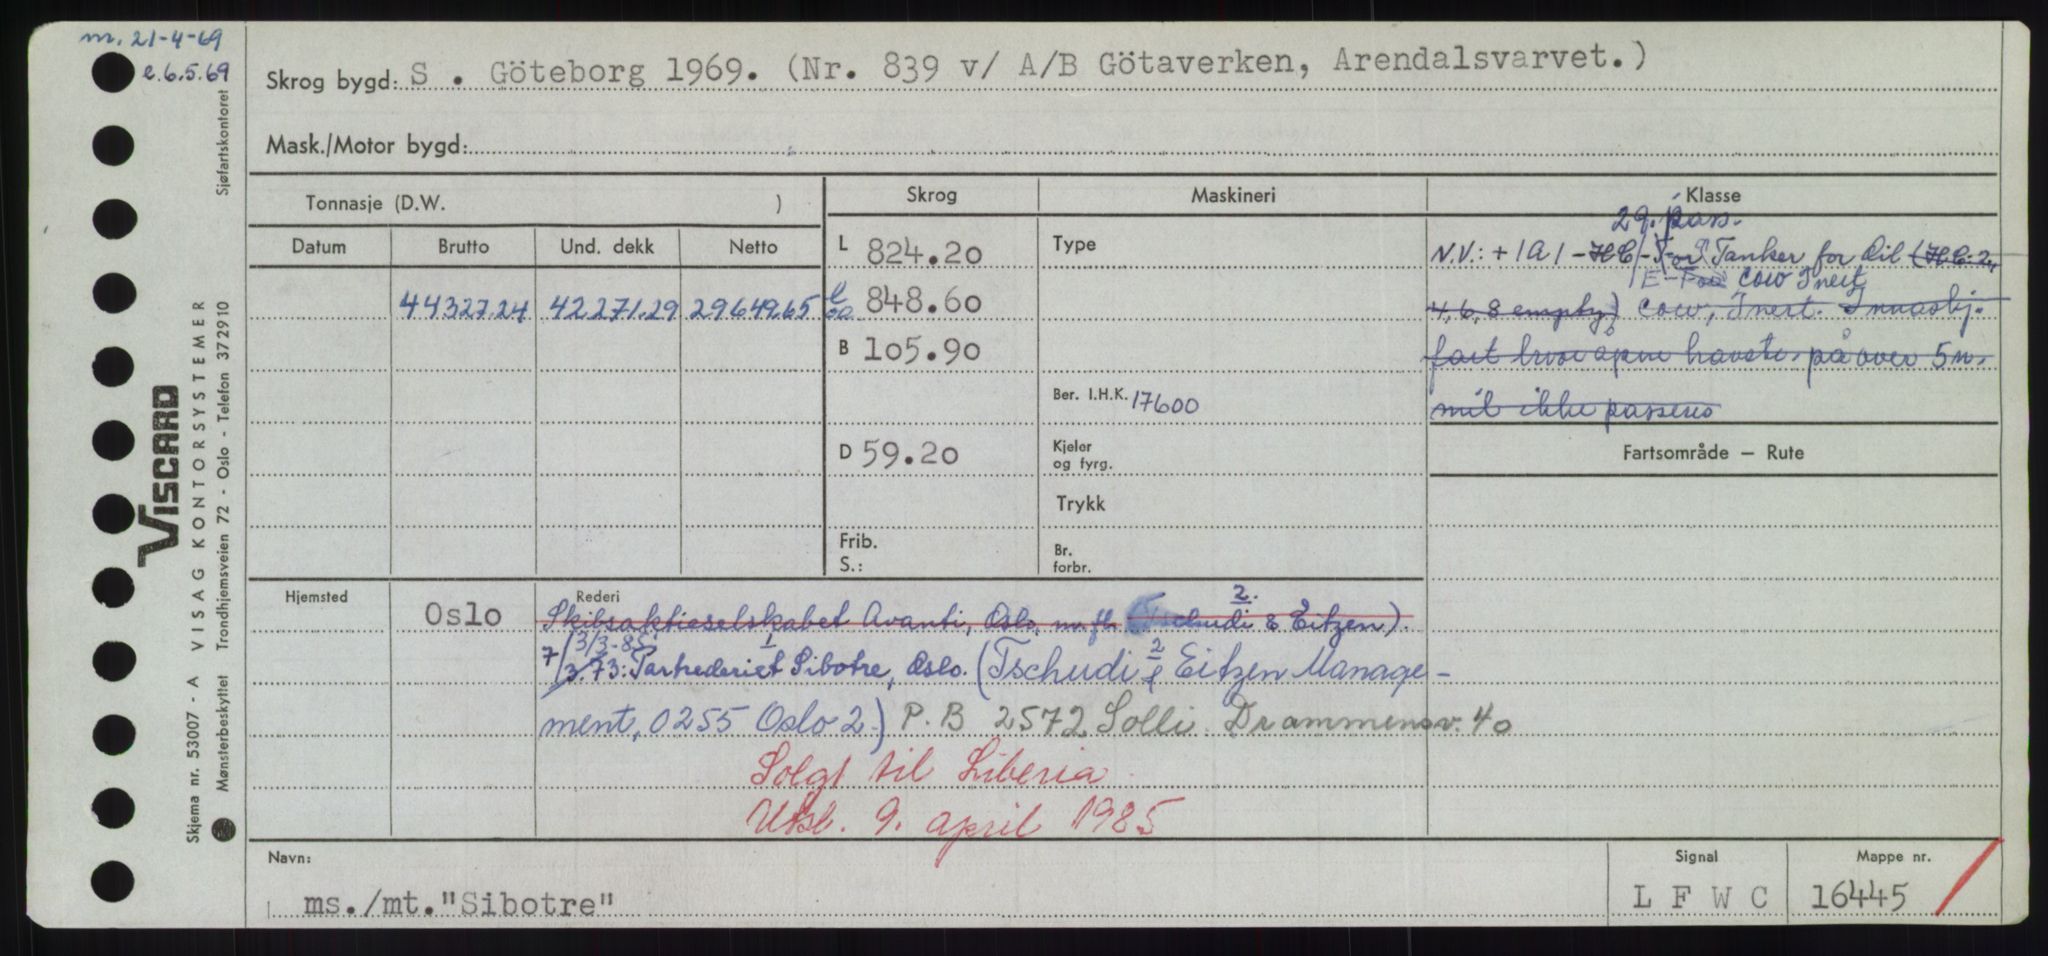 m. 21-4-69
e.6.5.69
Skrog bygd: S . Göteborg 1969. (Nr. 839 v/ A/B Götaverken, Arendalsvarvet.)
Mask./Motor bygd:
Tonnasje (D.W. )
Skrog
Maskineri
Klasse
Datum Brutto Und. dekk Netto
44327.24 42271.29 29649.65
L 824.20
l oa 848.60
B 105.90
D 59.20
Frib.
S.:
Type
Ber. I.H.K. 17600
Kjeler
og fyrg.
Trykk
Br.
forbr.
29. pass.
N.V.: + 1A1 - HC/E - For Tanker for Oil (H.C. 2,
E- For COW Inert
4, 6, 8 empty) COW, Inert. Innasbj.
fart hvor åpne havstr. på over 5 n.
mil ikke passeres
Fartsområde – Rute
Hjemsted
Oslo
Rederi
2.
Skibsaktieselskabet Avanti, Oslo, m.fl. (Tschudi & Eitzen).
3/3-85 1 2
7/3.73: Partrederiet Sibotre, Oslo. (Tschudi & Eitzen Manage-
ment, 0255 Oslo 2.) P.B 2572 Solli. Drammensv. 40
Solgt til Liberia
Utsl. 9. april 1985
Navn:
ms./mt. "Sibotre"
Signal
L F W C
Mappe nr.
16445
Sjøfartskontoret
VISCARD
VISAG KONTORSYSTEMER
Trondhjemsveien 72 - Oslo - Telefon 372910
Skjema nr. 53007 - A
Mønsterbeskyttet